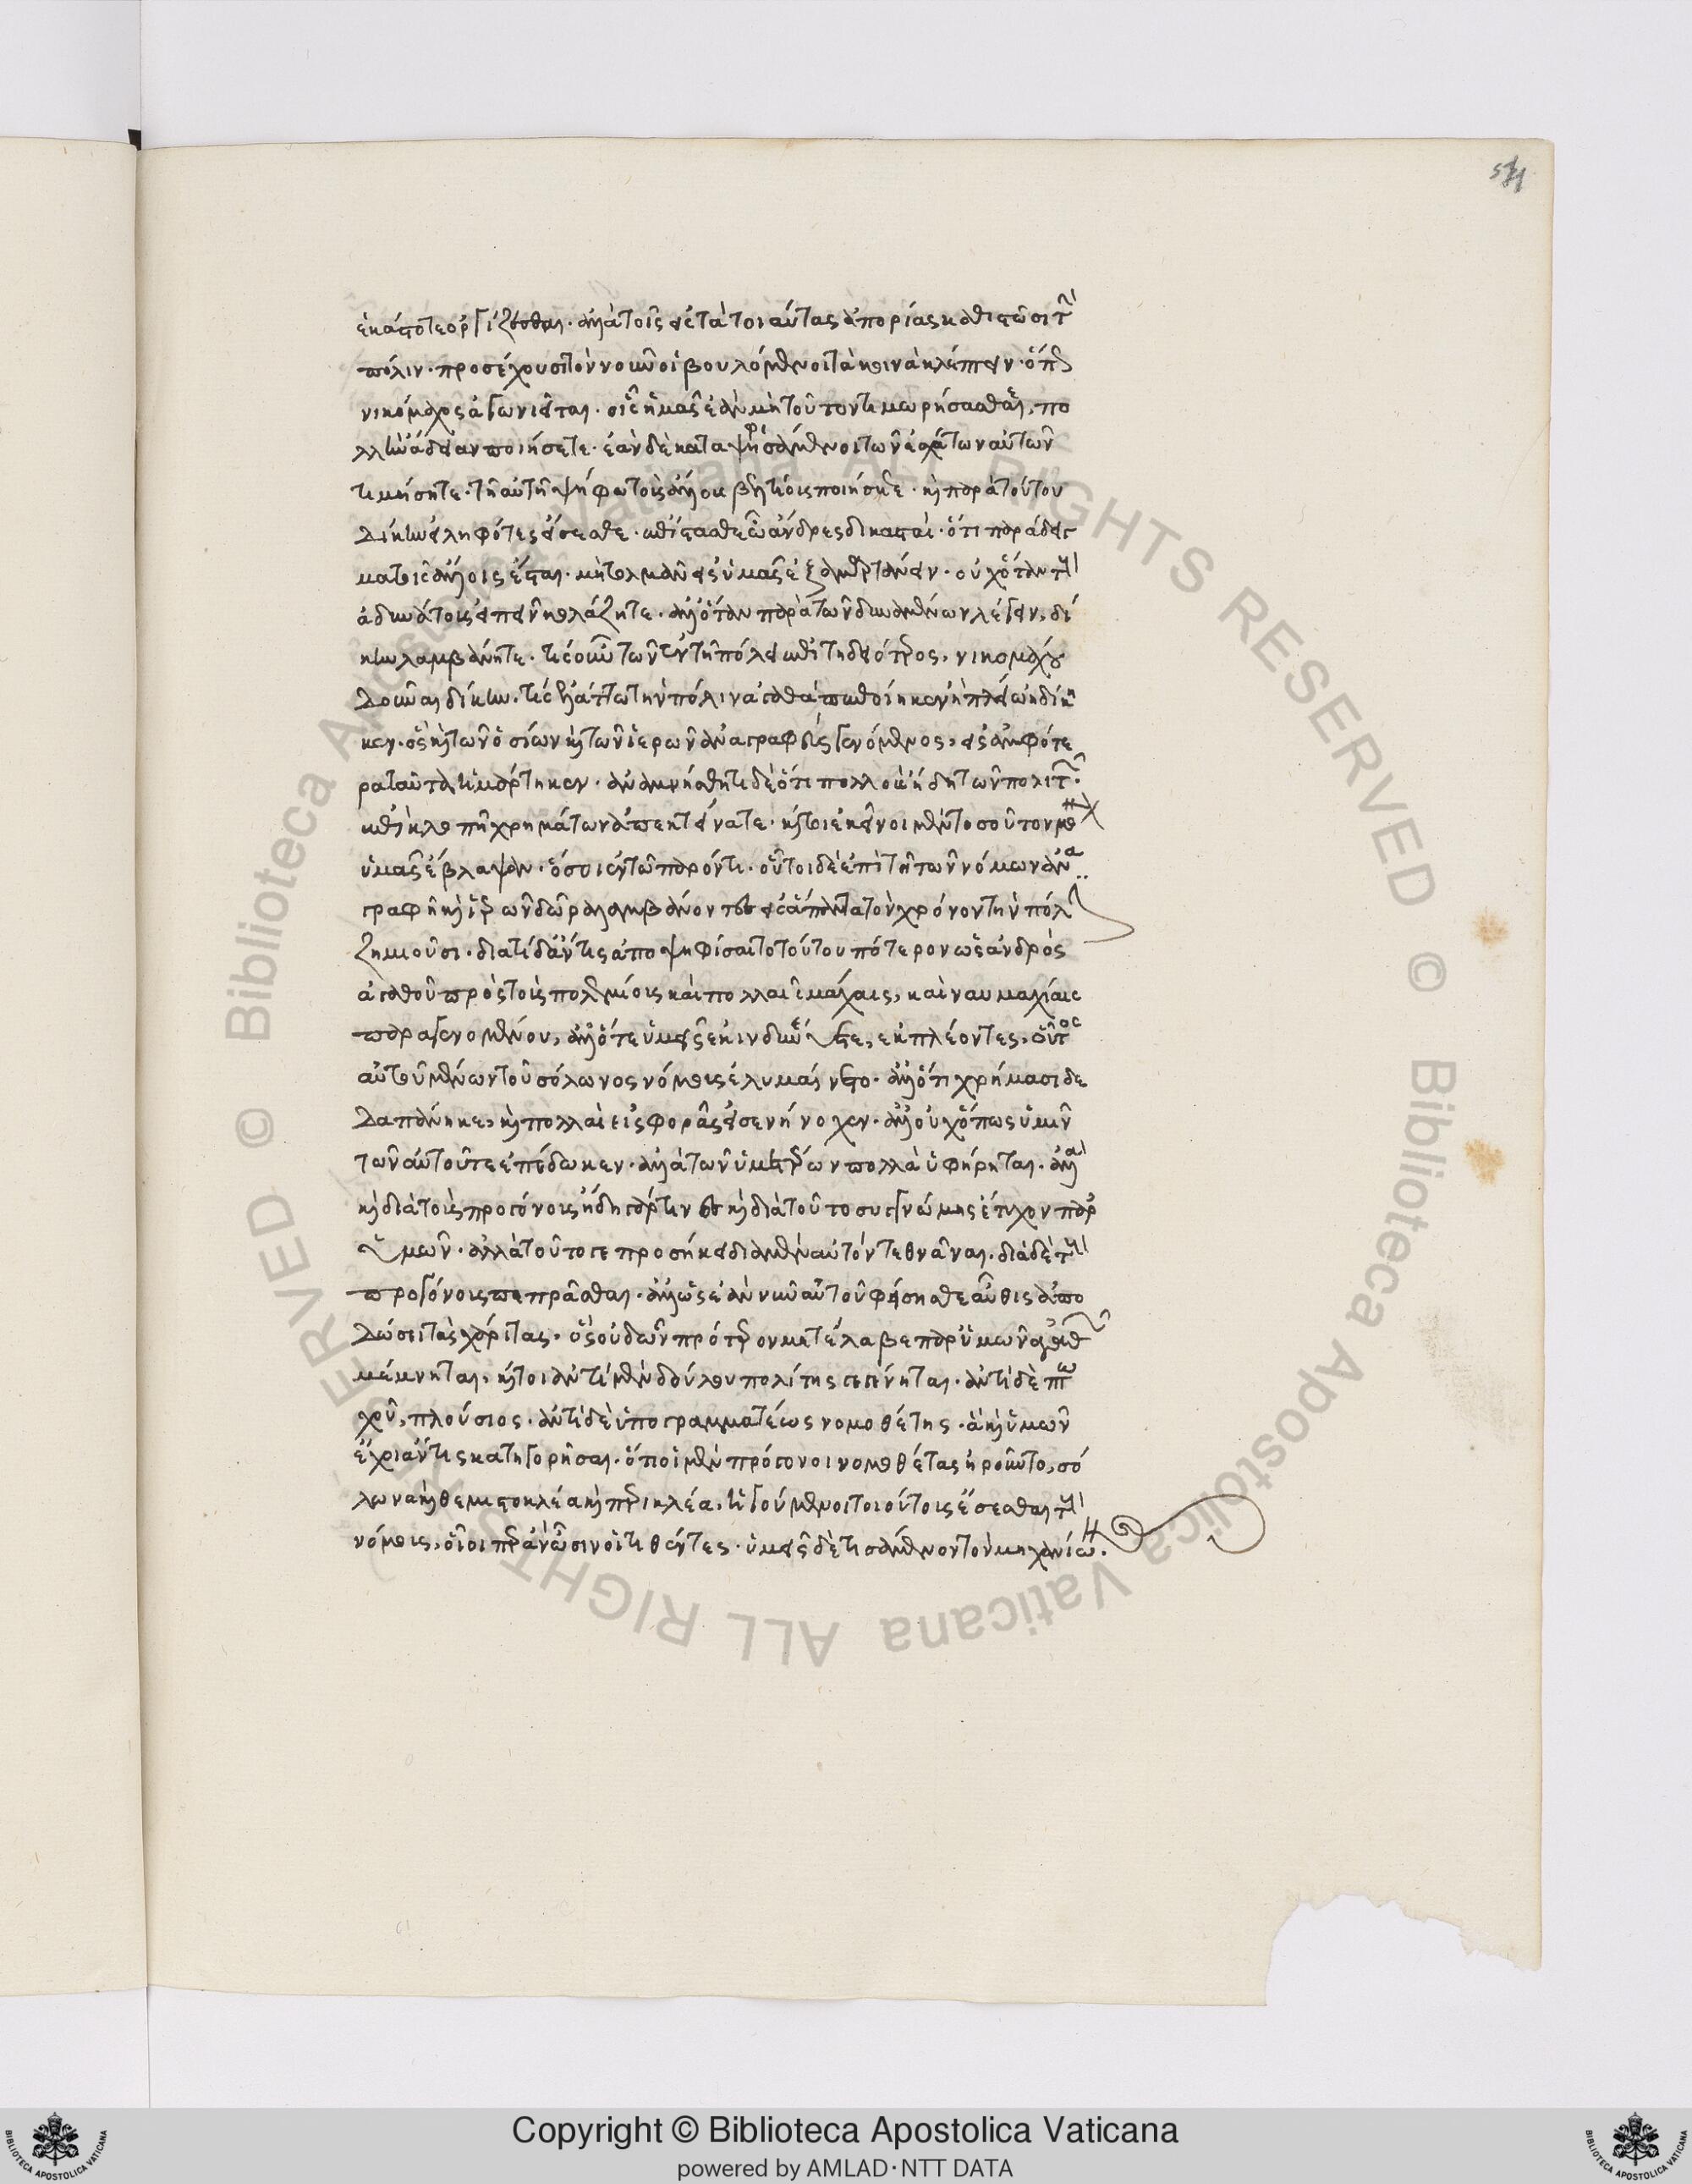 ἑκάστοτε ὀργίζεσθαι. ἀλλὰ τοῖς εἰς τὰ τοιαύτας ἀπορίας καθιστῶσι τὴν
πόλιν. προσέχουσι τὸν νοῦν οἱ βουλόμενοι τὰ κοινὰ κλέπτειν. ὅπως
νικόμαχος ἀγωνιεῖται. οἷς ἡμᾶς ἐὰν μὴ τοῦτον τιμωρήσασθαι, πο
λλὴν ἄδειαν ποιήσετε. ἐὰν δὲ καταψηφισάμενοι τῶν ἐσχάτων αὐτῶν
τιμήσητε. τῇ αὐτῇ ψήφω τοὺς ἄλλους βελτίους ποιήσετε. καὶ παρὰ τούτου
δίκην εἰληφότες ἔσεσθε. ἐπίστασθε ὦ ἄνδρες δικασταί. ὅτι παράδειγ
μα τοῖς ἄλλοις ἔσται. μὴ τολμᾶν εἰς ὑμᾶς ἐξαμαρτάνειν. οὐχ ὅταν τοὺς
ἀδυνάτους εἰπεῖν κολάζητε. ἀλλ' ὅταν παρὰ τῶν δυναμένων λέγειν, δί
κην λαμβάνητε. τίς οὖν τῶν ἐν τῇ πόλει ἐπιτηδειότερος, νικομάχου
δοῦναι δίκην. τίς ἐλάττω τὴν πόλιν ἀγαθὰ πεποίηκεν ἢ πλείω ἠδίκη
κεν. ὃς καὶ τῶν ὁσίων καὶ τῶν ἱερῶν ἀναγραφεὺς γενόμενος, εἰς ἀμφότε
ρα ταῦτα ἡμάρτηκεν. ἀναμνήσθητε δὲ ὅτι πολλοὺς ἤδη τῶν πολιτῶν
ἐπὶ κλοπῇ χρημάτων ἀπεκτείνατε. καίτοι ἐκεῖνοι μὲν τοσοῦτον μόνον
ὑμᾶς ἔβλαψαν. ὅσοι ἐν τῶ παρόντι. οὗτοι δὲ ἐπὶ τῇ τῶν νόμων ἀνα
γραφῇ καὶ ἱερῶν δῶρα λαμβάνοντες εἰς ἅπαντα τὸν χρόνον τὴν πόλιν
ζημιοῦσι. διατί δ' ἄν τις ἀποψηφίσαιτο τούτου πότερον ὡς ἀνδρὸς
ἀγαθοῦ πρὸς τοὺς πολεμίους καὶ πολλαῖς μάχαις, καὶ ναυμαχίαις
παραγενομένου, ἀλλ' ὅτε ὑμεῖς ἐκινδυνεύετε, ἐκπλέοντες, οὗτος
αὐτοῦ μένων τοῦ σόλωνος νόμους ἐλυμαίνετο. ἀλλ' ὅτι χρήμασι δε
δαπάνηκε, καὶ πολλὰς εἰσφορὰς εἰσενήνοχεν. ἀλλ' οὐχ ὅπως ὑμῖν
τῶν αὐτοῦ τε ἐπέδωκεν. ἀλλὰ τῶν ὑμετέρων πολλὰ ὑφήρηται. ἀλλὰ
καὶ διὰ τοὺς προγόνους ἤδη γάρ τινες καὶ διὰ τοῦτο συγγνώμης ἔτυχον παρ'
ὑμῶν. ἀλλὰ τούτο γε προσήκει διὰ μὲν αὐτὸν τεθνᾶναι. διὰ δὲ τοὺς
προγόνους πεπρᾶσθαι. ἀλλ' ὡς ἐὰν νῦν αὐτοῦ φείσησθε αὖθις ἀπο
δώσει τὰς χάριτας. ὃς οὐδ' ὧν πρότερον μετέλαβε παρ' ὑμῶν ἀγαθῶν
μέμνηται, καίτοι ἀντὶ μὲν δούλου πολίτης γεγένηται. ἀντὶ δὲ πτω
χοῦ, πλούσιος. ἀντὶ δὲ ὑπογραμματέως νομοθέτης. ἃ καὶ ὑμῶν
ἔχοι ἄν τις κατηγορῆσαι. ὅτι οἱ μὲν πρόγονοι νομοθέτας ᾑροῦντο, σό
λωνα καὶ θεμιστοκλέα καὶ περικλέα, ἡγούμενοι τοιούτους ἔσεσθαι τοὺς
νόμους, οἷοι περ ἂν ὦσιν οἱ τιθέντες. ὑμεῖς δὲ τισαμενὸν τὸν μηχανίωνος.